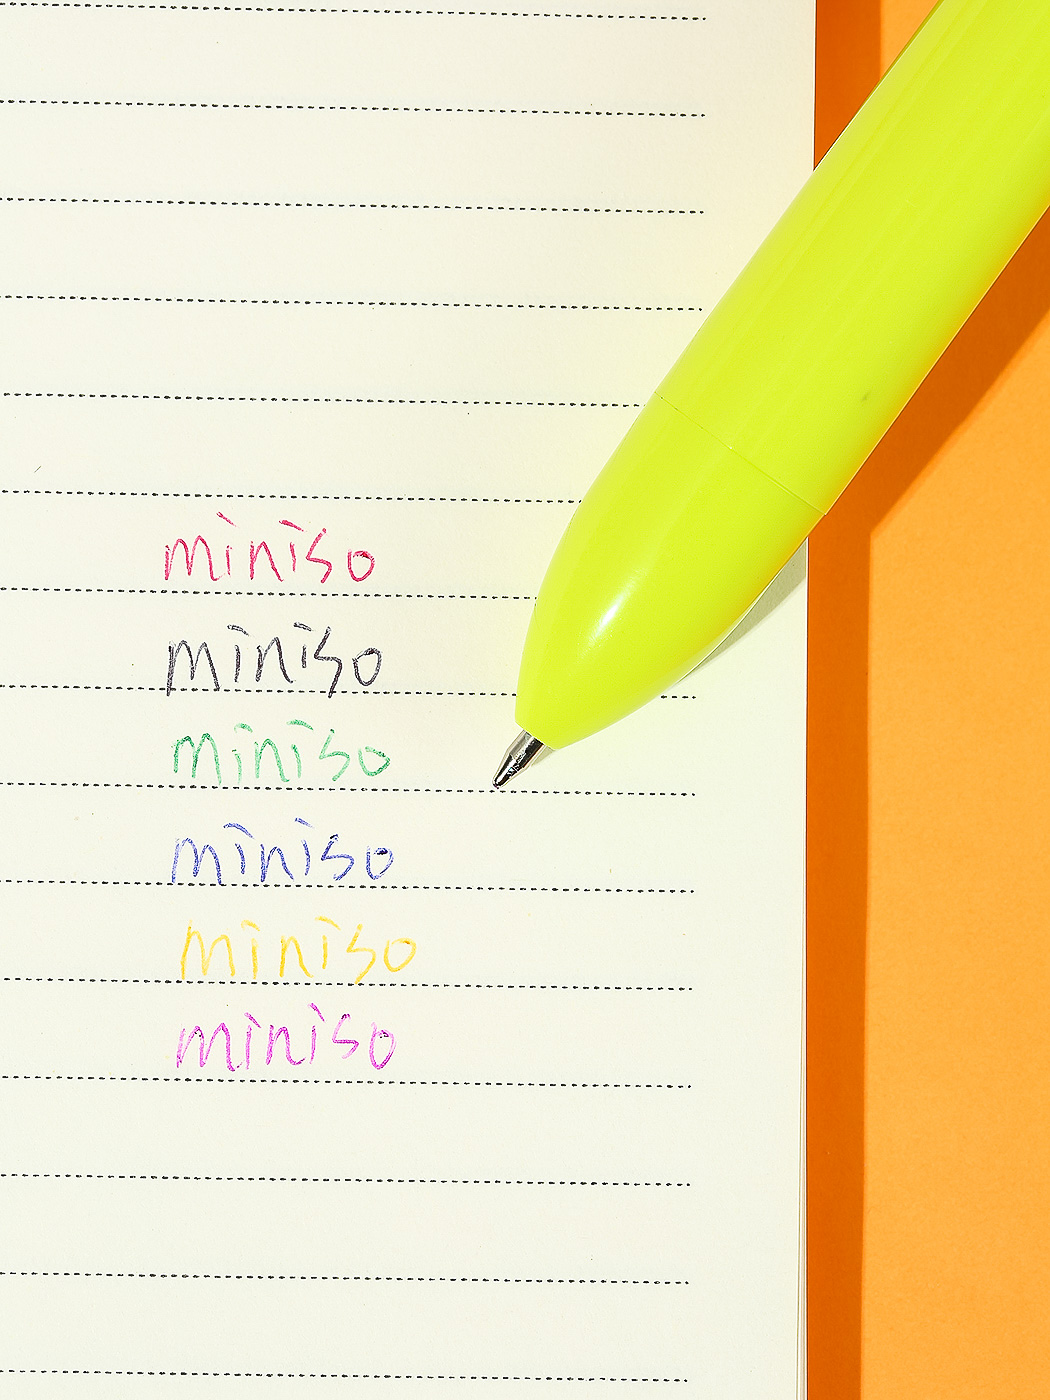 miniso
miniso
miniso
miniso
miniso
miniso